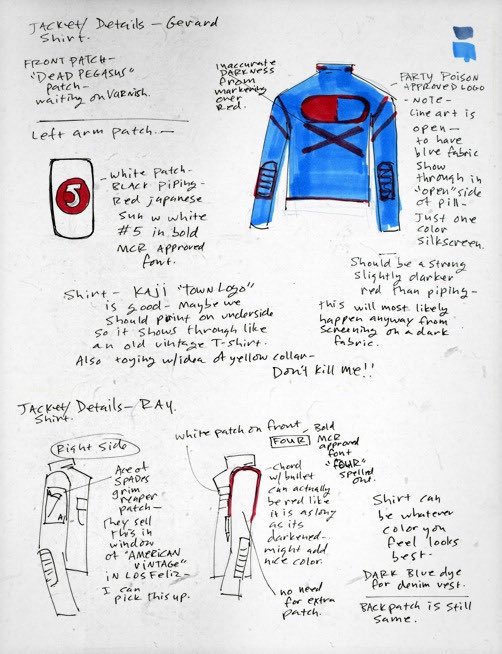 JACKET/ DETAILS — GERARD
SHIRT.
FRONT PATCH—
"DEAD PEGASUS"
Patch—
waiting on Varnish.
Left arm patch.—
5
—White Patch—
BLACK PIPING—
Red Japanese
Sun w white
#5 in bold
MCR APProved
font.
INACCURATE
DARKNESS
FROM
markering
over
Red.
PARTY POISON
APPROVED LOGO
—NOTE—
Line art is
open—
to have
blue fabric
Show
through in
"open" side
of pill—
Just one
color
Silkscreen.
Should be a strong
slightly darker
red than piping—
this will most likely
happen anyway from
screening on a dark
fabric.
Shirt — KAJI "TOWN LOGO"
is good— maybe we
should print on underside
so it shows through like
an old vintage T-shirt.
Also toying w/idea of yellow collar—
Don't kill me!!
JACKET/ DETAILS—RAY.
Shirt.
Right Side
Ace of
SPADES
grim
reaper
patch—
they sell
this in
window
of "AMERICAN
VINTAGE"
in LOS Feliz—
I can
Pick this up.
white patch on front
FOUR
Bold
MCR
approved
font
"FOUR"
spelled
out.
—Chord
w/ bullet
can actually
be red like
it is as long
as its
darkened—
might add
nice color.
no need
for extra
patch.
Shirt can
be whatever
color you
feel looks
best—
DARK Blue dye
for denim vest.
BACKpatch is still
same.